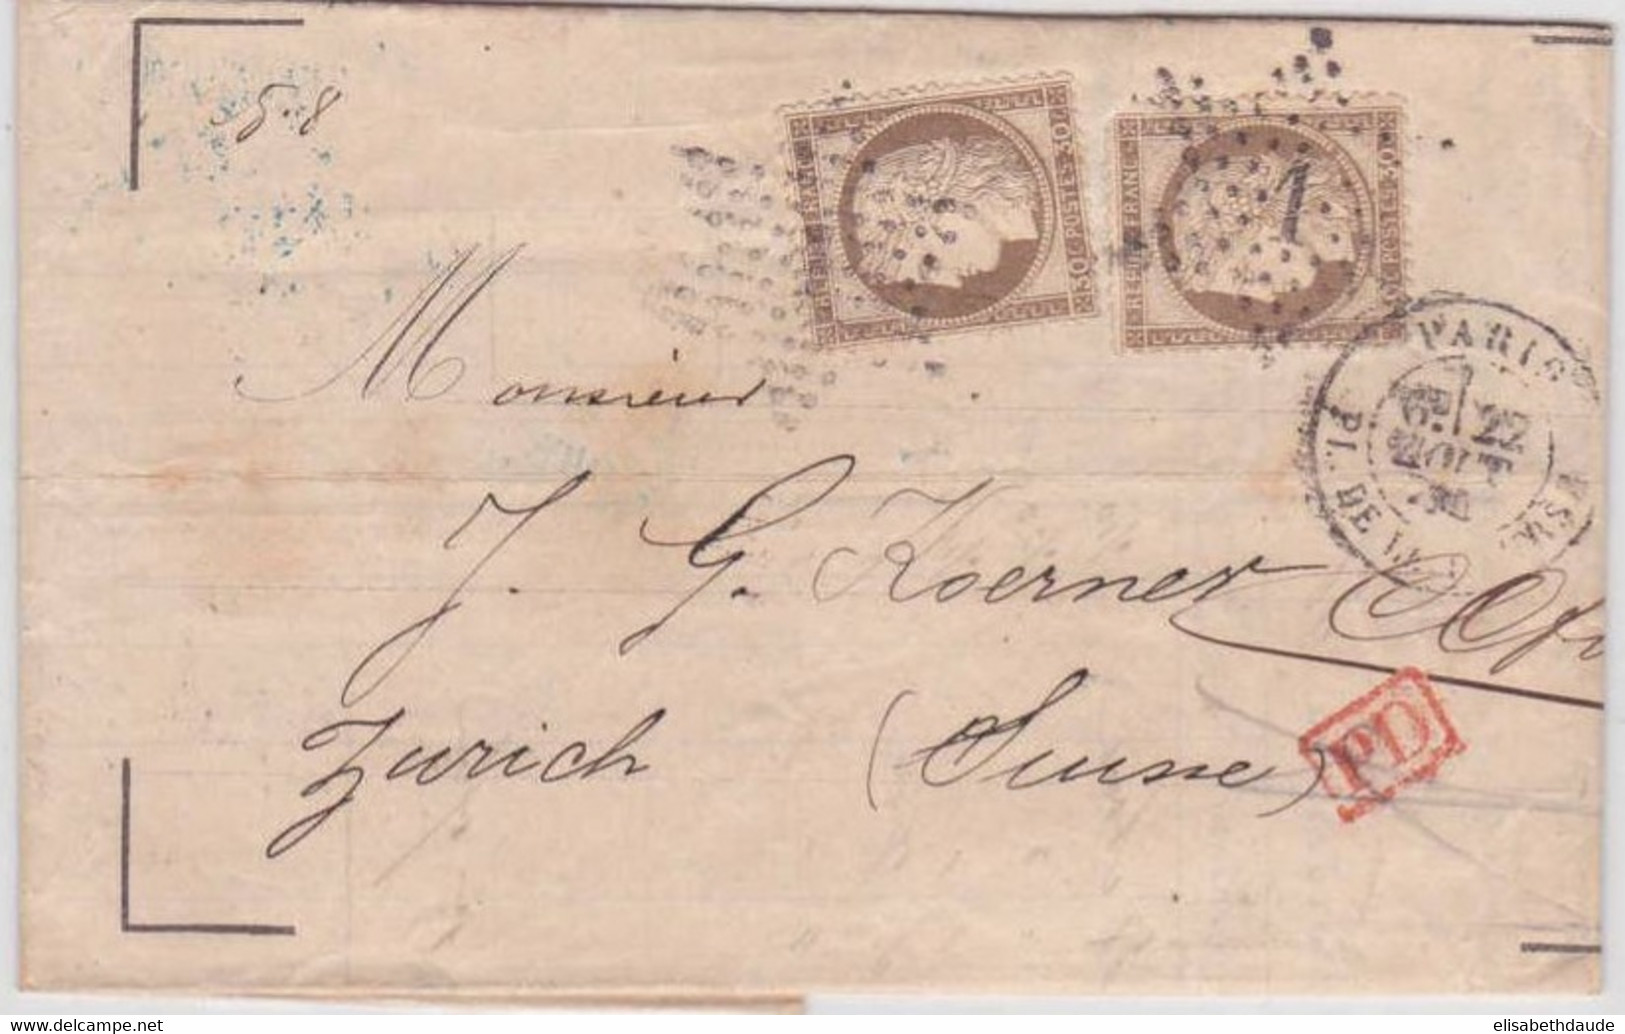 5.8
REPUB. FRANC.
30 C. POSTES. 30
REPUB. FRANC.
30 C. POSTES. 30
1
PARIS
22
AOUT
PL. DE LA BOURSE
Monsieur
J. G. Koerner
Zurich (Suisse)
PD
www.delcampe.net
elisabethdaude